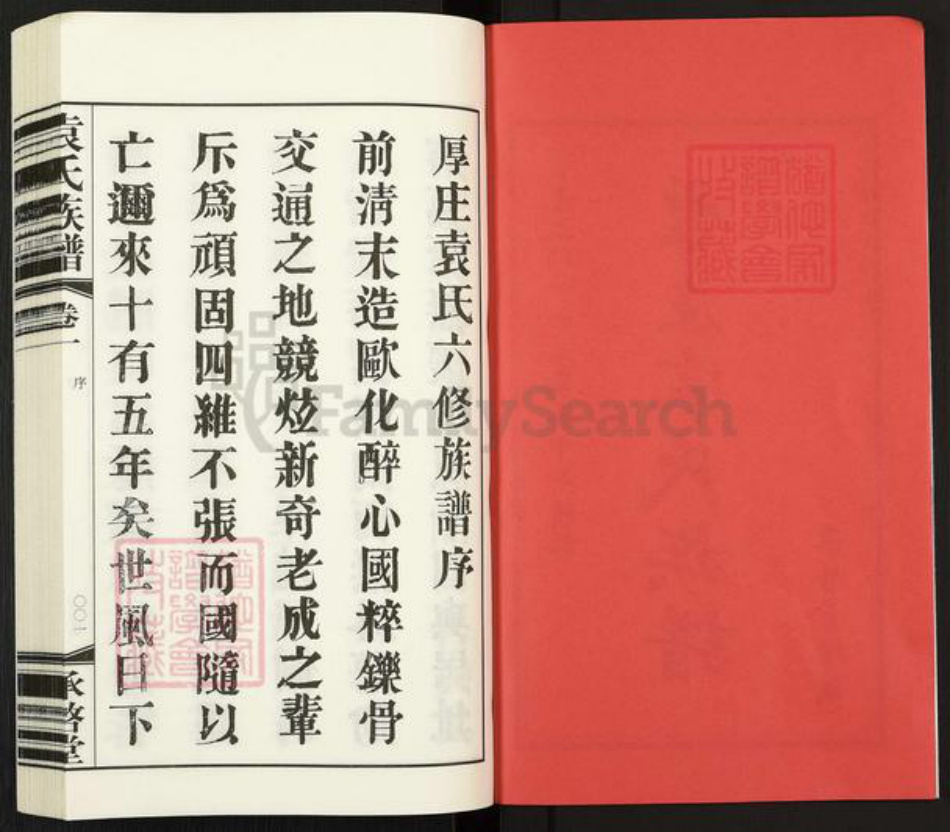 厚庄袁氏六修族譜序
前淸末造歐化醉心國粹鑠骨
交通之地競炫新奇老成之輩
斥爲頑固四維不張而國隨以
亡邇來十有五年矣世風日下
袁氏族譜
卷一
序
〇〇一
承啓堂
FamilySearch